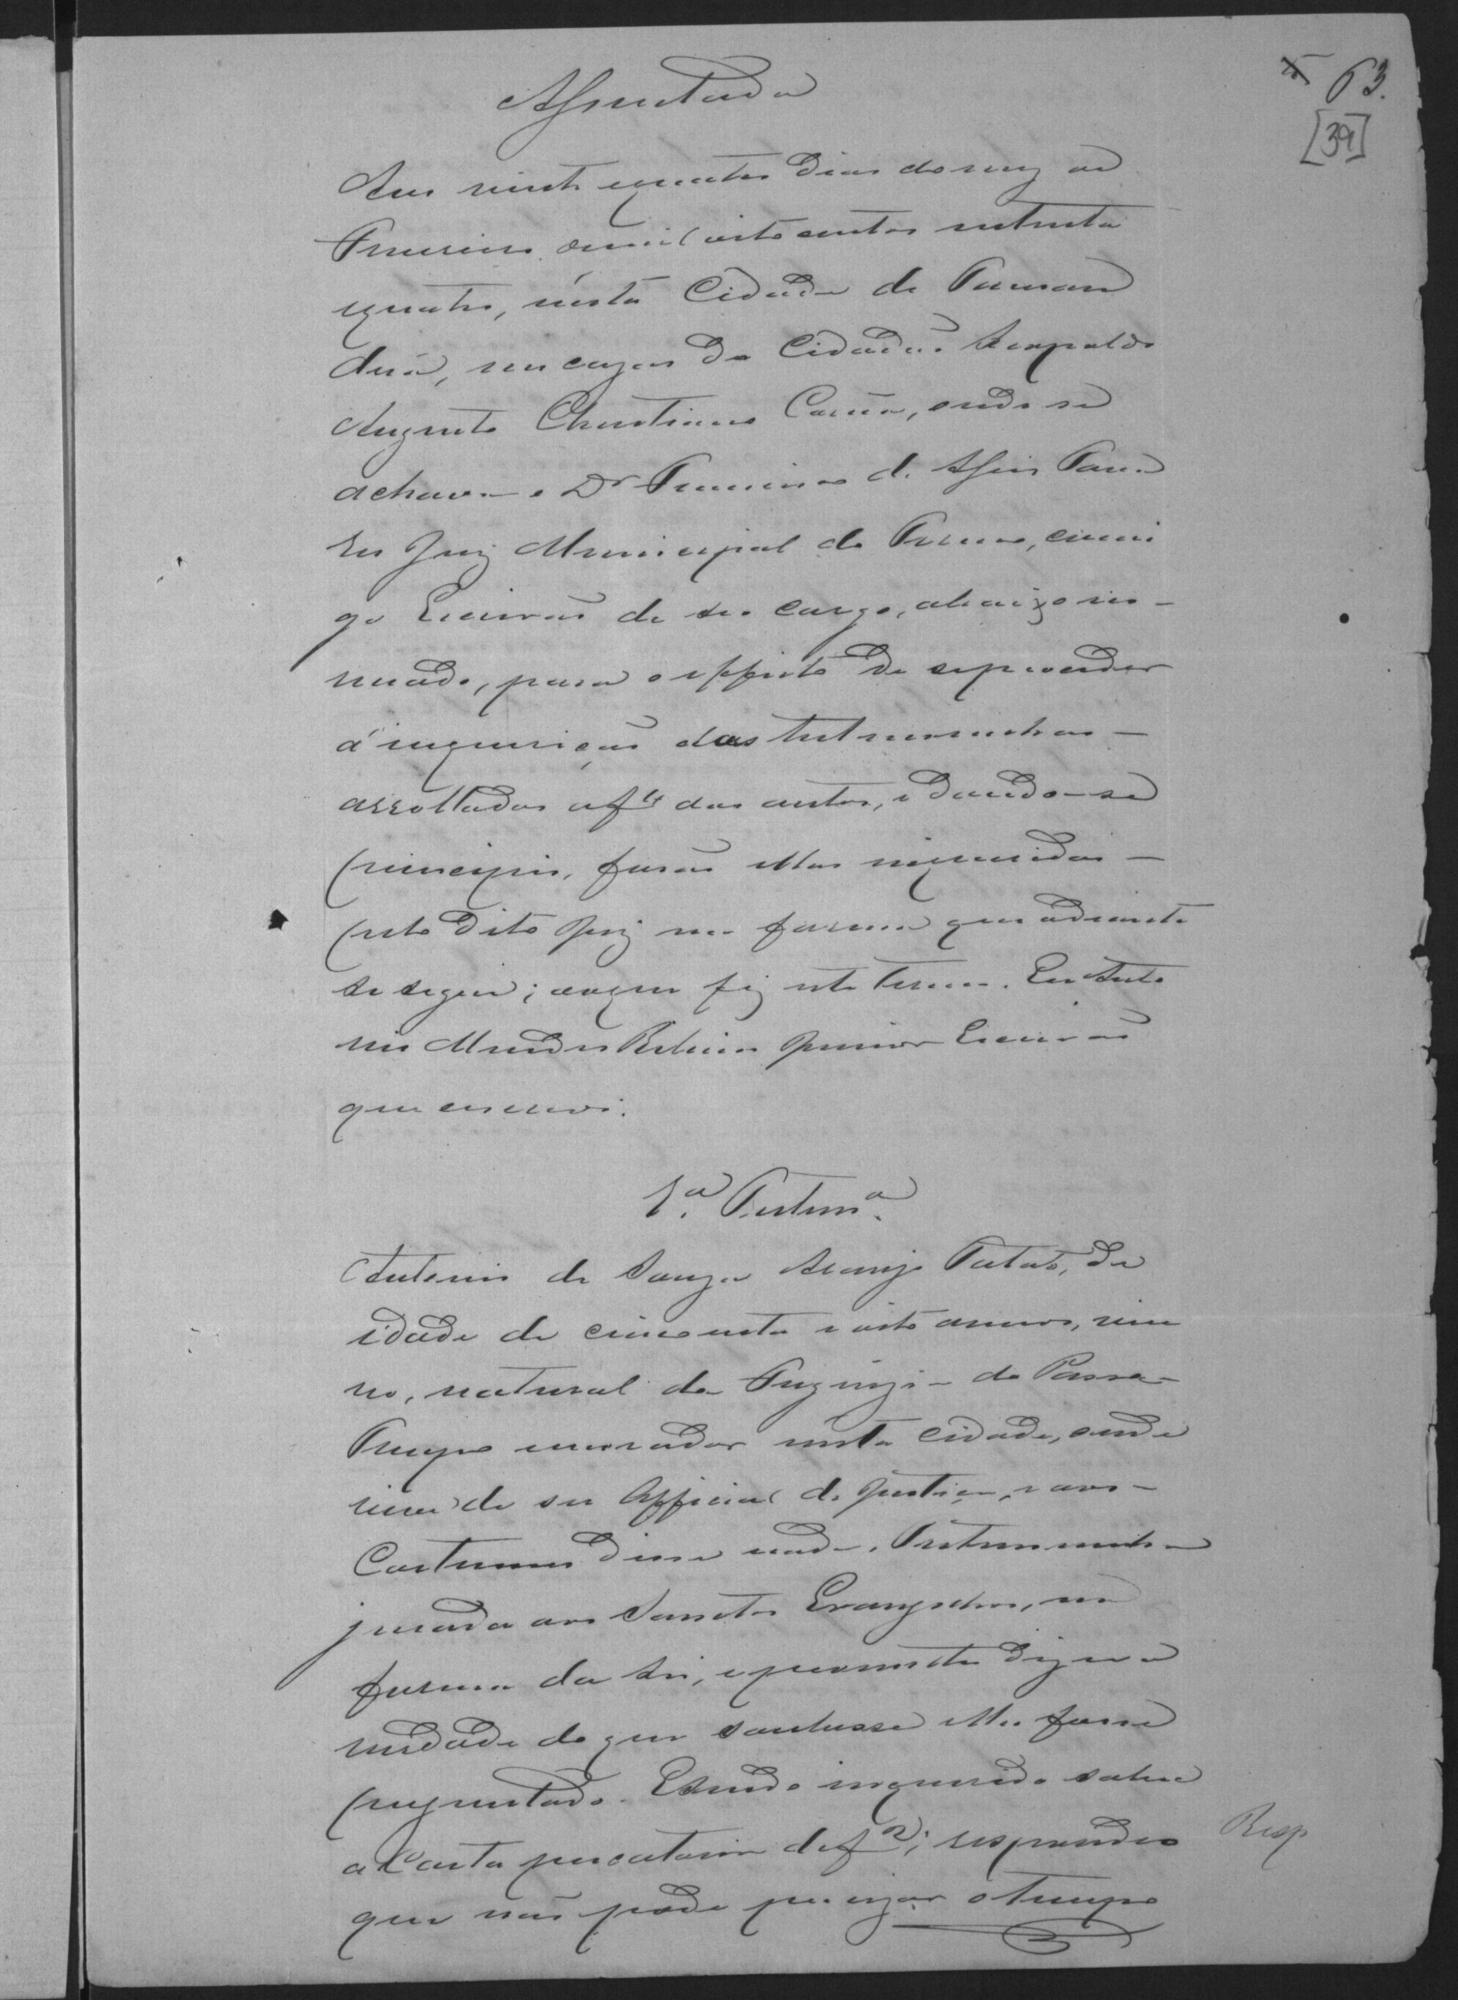 63.
[39]
Assentada
Aos vinte e quatro dias do mez de
Fevereiro de mil oito centos setenta
e quatro, nésta Cidade de Taman
duá, em cazas do Cidadão Leopoldo
Augusto Christiano Corrêa, onde se
achava o Dr Francisco de Assis Tava
res Juiz Municipal do Termo, comi
go Escrivão de seo cargo, abaixo no-
meado, para o effeito de se proceder
á inquirição das testemunhas
arrolladas a f 4 dos autos, e dando-se
principio, forão ellas inqueridas
pelo dito Juiz na forma que adiante
se segue; do que fiz este termo. Eu Anto
nio Mendes Ribeiro Junior Escrivão
que escrevi.
1.ª Testemª.
Antonio de Souza Araujo Tatal, de
idade de cincoenta e oito annos, viu
vo, natural da Freguezia do Passa-
Tempo morador nesta cidade, onde
vive de seu Official de Justiça, e aos
Costumes disse nada. Testemunha
jurada aos Sanctos Evangelhos, na
forma da Lei, e prometteo dizer a
verdade do que soubesse e lhe fosse
preguntado. E sendo inquerido sobre
a Carta precatoria de f 2; respondeo
Resp
que não póde precizar o tempo